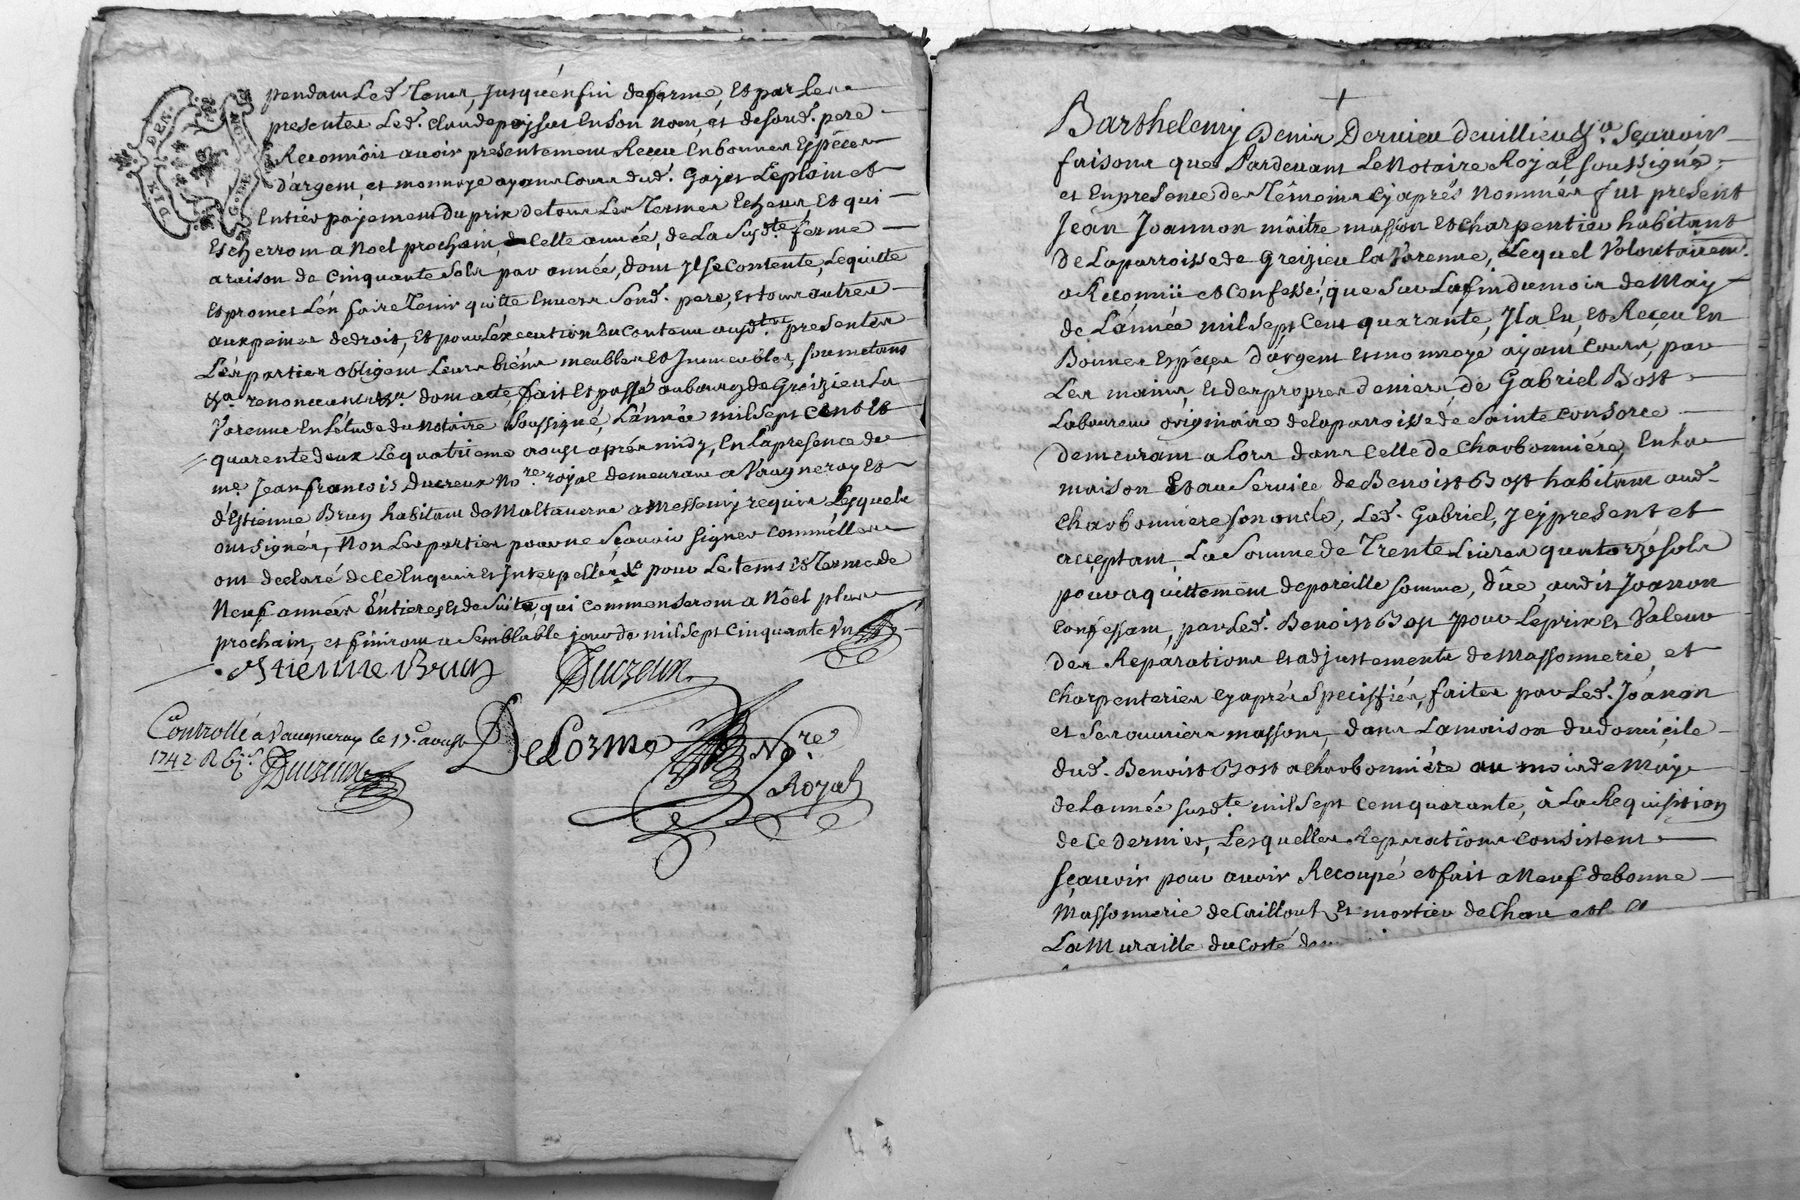 DIX DEN.
G. DE LYON
pendant Led. Tems, Jusquéenfin deferme, Et par Les
presentes Led. claude peyssat Enson nom, et desond. pere
Reconnôit avoir presentement Receu Enbonnes Espéces
d'argent et monnoye ayans Cours dud. Gajet Leplain et
Entiér pajement du prix detous Les Termes Echeus Et qui
Escherront a Noel prochain, de Cette année, de La susdte. ferme
araison de Cinquante sols par année, dont Il se Contente, Lequitte
Et promet L'en faire Tenir quitte Envers sond. pere, et tous autres
aux peines dedroit, Et pour L'éxecution du Contenu ausdtes. presentes
Les parties obligent Leurs biéns meubles Et Jmmeubles, soumetans
&a. renonceant &a. dont acte fait Et passé aubourg de Greizieu La
Varenne En L'étude du Notaire soussigné, L'année mil sept cent Et
quarente deux Le quatrieme aoust aprés midy, En La presence de
me. Jean françois Ducreux Nore. royal demeurant a Vaugneray Et
d'Estienne Brun habitant de Maltaverne a Messemy requis Lesquels
ont signés, Non Les parties pour ne sçavoir signer Comm'élles
ont declaré de Ce Enquis Et Interpellés & pour Le tems Et Terme de
Neuf années Entieres Et de suite qui Commenseront a Nôel plus
prochain, et finiront a semblable jour de mil sept Cinquante Vn
Estiénne Brun Ducreux
Controllé à Vaugneray le 15.e aoust
1742 R Ducreux
DeLorme Nre.
Royal
Barthelemy Denis Dervieu de villieu &a. sçavoir
faisons que Pardevant Le Notaire Royal soussigné,
et Enpresence des Témoins cy aprés Nommés fut present
Jean Joannon mâitre masson Et charpentier habitant
de Laparroisse de Greizieu la Varenne, Lequel Volontairemt.
a Reconnü et Confessé, que sur La fin du mois de May
de L'année mil sept Cent quarante, Jl a Eu, Et Reçeu En
Bonnes Espéces d'argent Et monnoye ayant Cours, par
Les mains, Et des propres deniers de Gabriel Bost
Laboureur originaire de Laparroisse de Sainte Consorce
demeurant alors dans Celle de Charbonniére, En La
maison Et au Service de Benoist Bost habitant aud.
Charbonniere son oncle, Led. Gabriel, Jcy present et
acceptant, La somme de Trente Livres quatorze sols
pour aquittement de pareille somme, dûe audit Joannon
Confessant, par Led. Benoist Bost pour Le prix Et Valeur
des Reparations Et adjustements de Massonnerie, et
Charpenterie Cy aprés specifiés, faites par Led. Joanon
et ses ouvriers massons, dans La maison du domiçile
dud. Benoist Bost a Charbonniére au mois de May
de L'année susdte. mil sept Cent quarante, à La Requisition
de Ce dernier, Lesquelles Reparations Consistent
sçavoir pour avoir Recoupé et fait a Neuf de bonne
Massonnerie de Caillout, Et mortier de Chaux
La Muraille du Costé